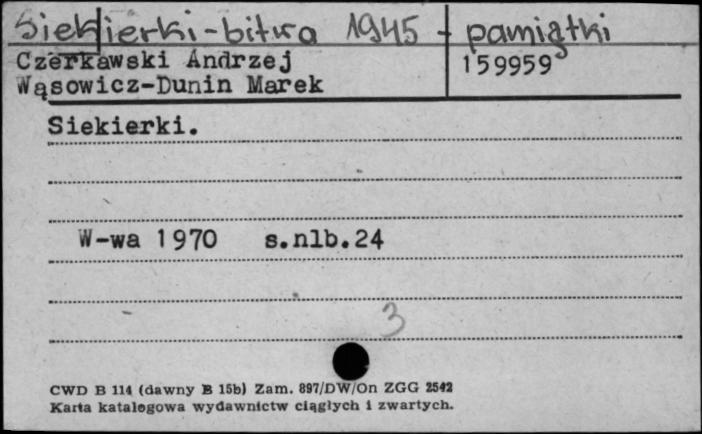 Siekierki-bitwa 1945 - pamiątki
Czerkawski Andrzej 159959
Wąsowicz-Dunin Marek
Siekierki.
W-wa 1970 s.nlb.24
3
CWD B 114 (dawny B 15b) Zam. 897/DW/On ZGG 2542
Karta katalogowa wydawnictw ciągłych i zwartych.